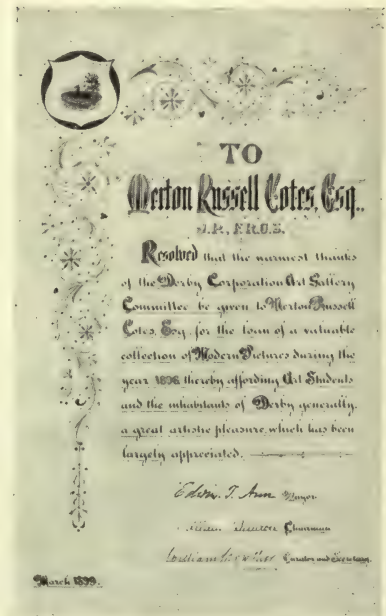 TO
Merton Russell Cotes, Esq.,
J.P., F.R.G.S.
Resolved that the warmest thanks
of the Derby Corporation Art Gallery
Committee be given to Merton Russell
Cotes, Esq., for the loan of a valuable
collection of Modern Pictures during the
year 1898, thereby affording Art Students
and the inhabitants of Derby generally,
a great artistic pleasure, which has been
largely appreciated.
Edwin T. Ann Mayor
Chairman
William Curator and Secretary
March 1899.